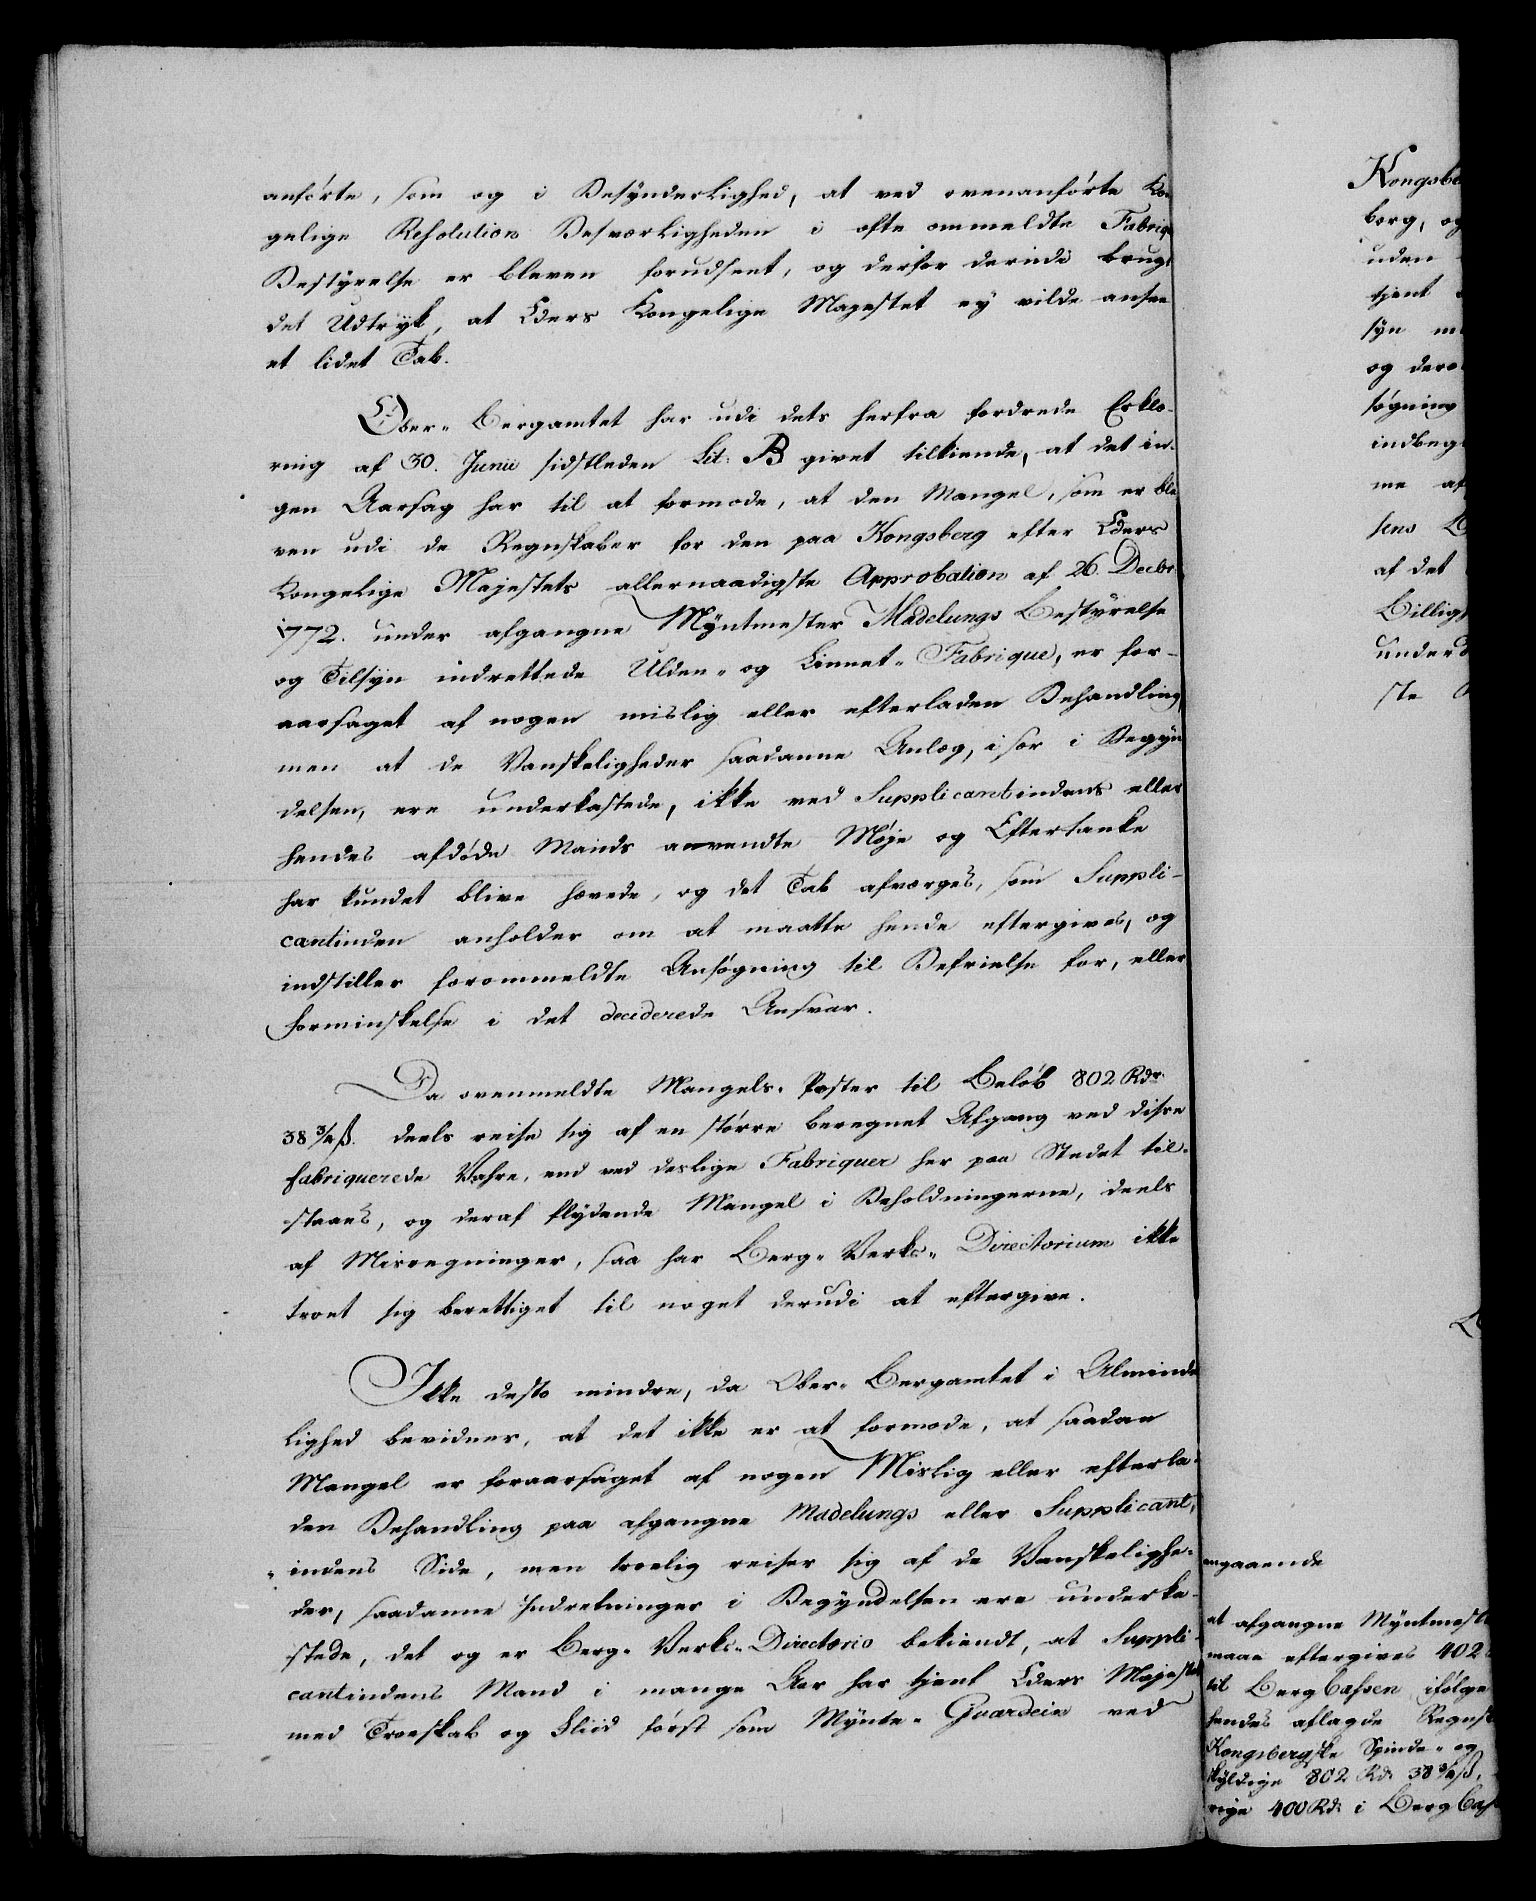 anførte, som og i Besynderlighed, at ved ovenanførte Kon
gelige Resolution Besværligheden i ofte ommeldte Fabriqs
Bestyrelse er bleven forudseet, og derfor derudi brugt
det Udtryk, at Eders Kongelige Majestet ey vilde ansee
et lidet Tab.
Ober- Bergamtet har udi dets herfra fordrede Erklæ-
ring af 30. Junii sidstleden Lit: B givet tilkiende, at det in-
gen Aarsag har til at formode, at den Mangel, som er ble
ven udi de Regnskaber for den paa Kongsberg efter Eders
Kongelige Majestets allernaadigste Approbation af 26. Decbr.
1772. under afgangne Myntmester Madelungs Bestyrelse
og Tilsyn indrettede Ulden- og Linnet- Fabrique, er for-
aarsaget af nogen mislig eller efterladen Behandling,
men at de Vanskeligheder saadanne Anlæg, i sær i Begyn
delsen, ere underkastede, ikke ved Supplicantindens eller
hendes afdøde Mands anvendte Møje og Eftertanke
har kundet blive hævede, og det Tab afværges, som Suppli-
cantinden anholder om at maatte hende eftergives, og
indstiller forommeldte Ansøgning til Befrielse for, eller
Forminskelse i det deciderede Ansvar.
Da ovenmeldte Mangels- Poster til Beløb 802 Rdr.
38 3/4 ß. deels reise sig af en større beregnet Afgang ved disse
fabriquerede Vahre, end ved deslige Fabriquer her paa Stedet til-
staaes, og deraf flydende Mangel i Beholdningerne, deels
af Misregninger, saa har Berg- Verks- Directorium ikke
troet sig berettiget til noget derudi at eftergive.
Ikke desto mindre, da Ober- Bergamtet i Alminde
lighed bevidner, at det ikke er at formode, at saadan
Mangel er foraarsaget af nogen Mislig eller efterla-
den Behandling paa afgangne Madelungs eller Supplicant,
-indens Side, men troelig reiser sig af de Vanskelighe-
der, saadanne Indretninger i Begyndelsen ere underka-
stede, det og er Berg- Verks- Directorio bekiendt, at Suppli-
cantindens Mand i mange Aar har tjent Eders Majestet
med Troeskab og Fliid først som Mynte- Guardein ved
Kongsbe
borg, og
uden
tjent
syn
og dere
søgning
indbeg
me af
sens
af det
Billig
under
ste
angaaende
at afgangne Myntmest
maae eftergives 402
til Berg Cassen ifølge
hendes aflagde Regnsk
Kongsbergske Spinde- og
skyldige 802 Rd. 38 3/4 ß.
rige 400 Rd. i Berg Cas